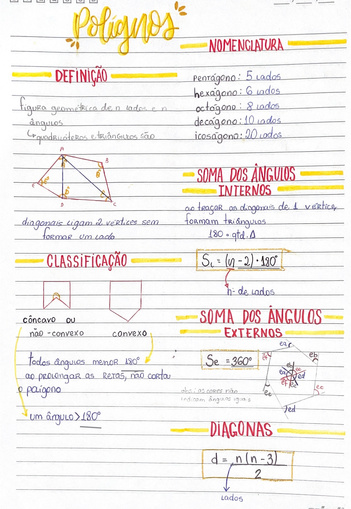 Polígnos
DEFINIÇÃO
figura geométrica de n lados e n
ângulos
↳ quadriláteros e triângulos são
A
B
C
D
E
diagonais ligam 2 vértices sem
formar um lado
CLASSIFICAÇÃO
côncavo ou
não-convexo
convexo
todos ângulos menor 180°
ao prolongar as RETAS, não corta
o polígono
um ângulo > 180°
NOMENCLATURA
pentágono: 5 lados
hexágono: 6 lados
octógono: 8 lados
decágono: 10 lados
icoságono: 20 lados
SOMA DOS ÂNGULOS
INTERNOS
ao traçar as diagonais de 1 vértice,
formam triângulos
180 • qtd. Δ
Si = (n-2)•180°
n- de lados
SOMA DOS ÂNGULOS
EXTERNOS
Se = 360°
DIAGONAS
d = n(n-3)
2
lados